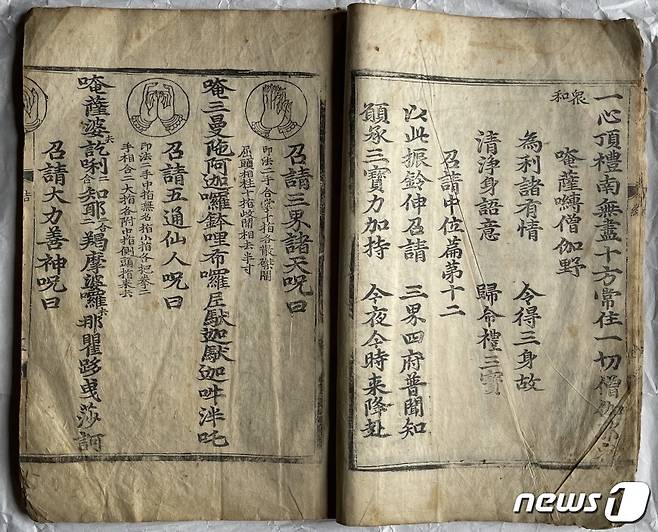 一心頂禮南無盡十方常住一切僧
衆和
唵薩嚩僧伽野
為利諸有情 令得三身故
清淨身語意 歸命禮三寶
召請中位篇苐十二
以此振鈴伸召請 三界四府普聞知
願承三寶力加持 今夜今時来降赴
召請三界諸天呪曰
印法二手合掌十指各散磔開
屈頭相拄十指岐間相去半寸
唵三曼陁阿迦囉鉢哩布囉尼馱迦馱迦吽泮吒
召請五通仙人呪曰
印法二手中指無名指小指各把拳二
手相合二大指各附中指側頭指来去
唵薩婆訖唎二合知耶二合羯摩婆囉去那瞿跢曳莎訶
召請大力善神呪曰
news1